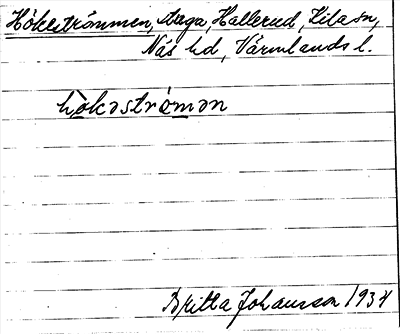 Hökeströmmen, Aaga, Hallerud, Kila sn,
Näs hd, Värmlands l.
hö̀kəströ́mən
Britta Johansson 1934